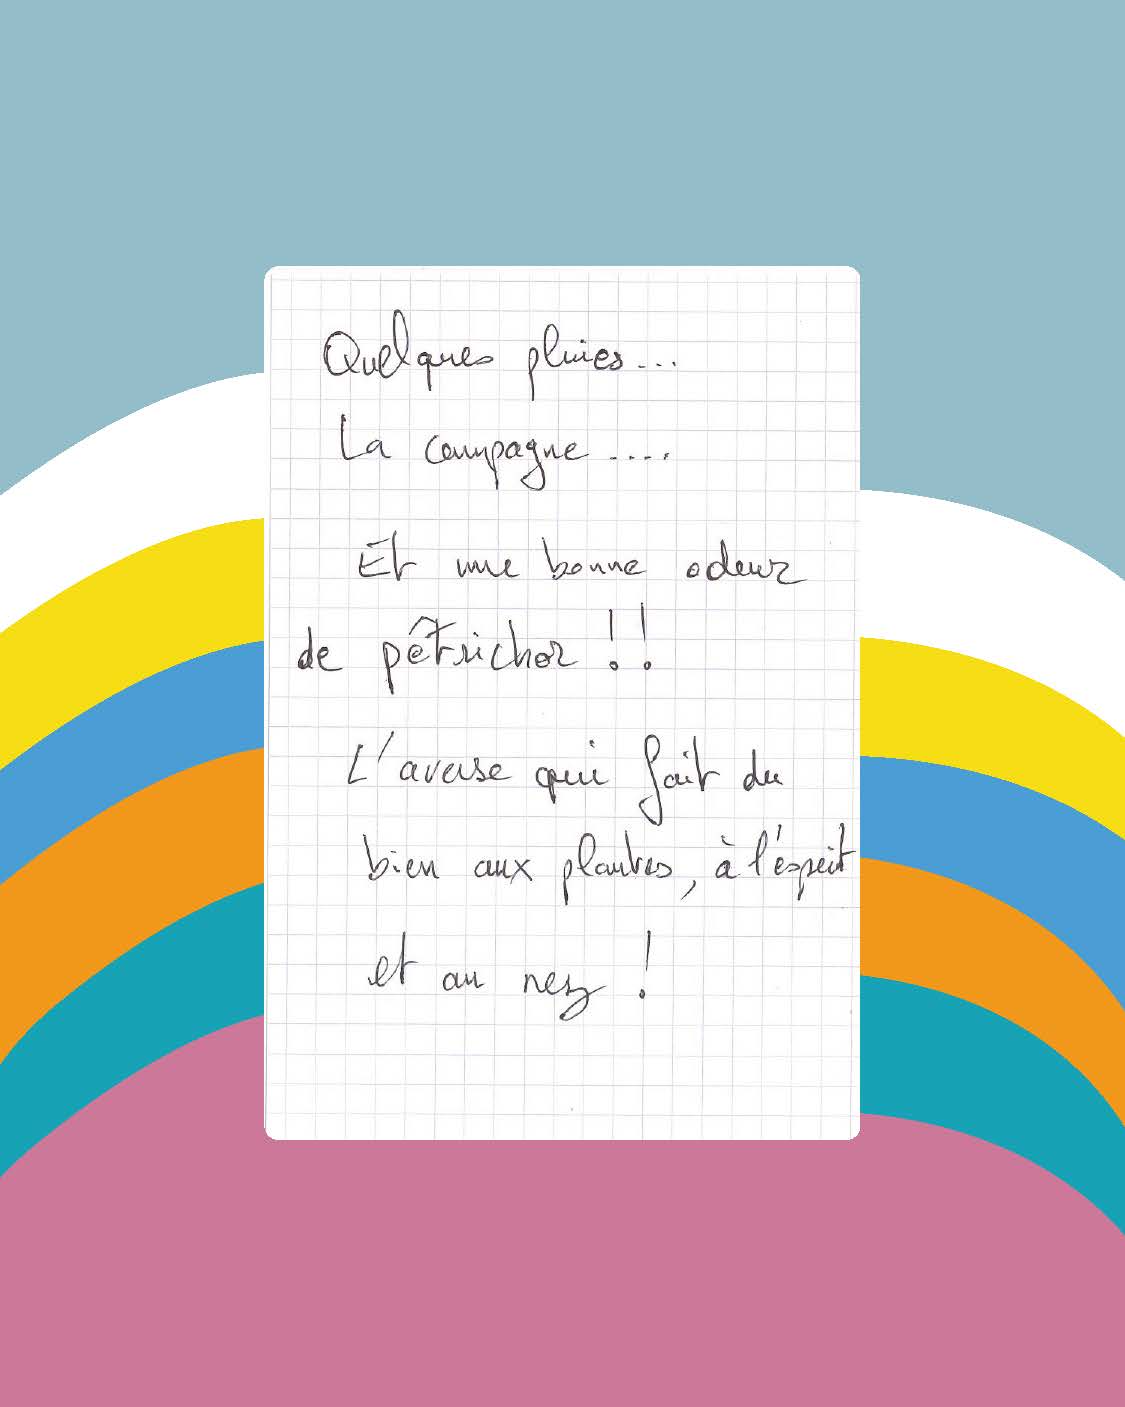 Quelques pluies...
La campagne ....
Et une bonne odeur
de pêtrichor !!
L'averse qui fait du
bien aux plantes, à l'esprit
et au nez !